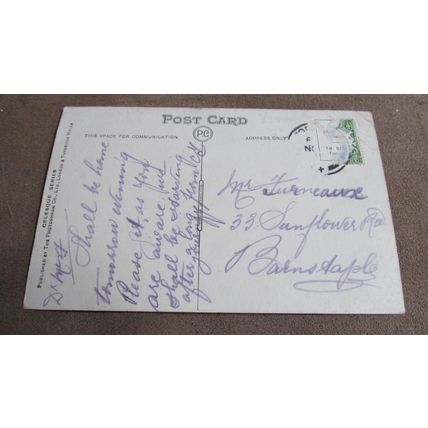 POST CARD
THIS SPACE FOR COMMUNICATION
ADDRESS ONLY
CELESQUE SERIES
PUBLISHED BY THE PHOTOCHROM CO., LTD., LONDON & TUNBRIDGE WELLS
Shall be home
tomorrow evening
Please as you
are aware, just
shall be starting
after a long
Mr Turneaux
33 Sunflower Rd
Barnstaple